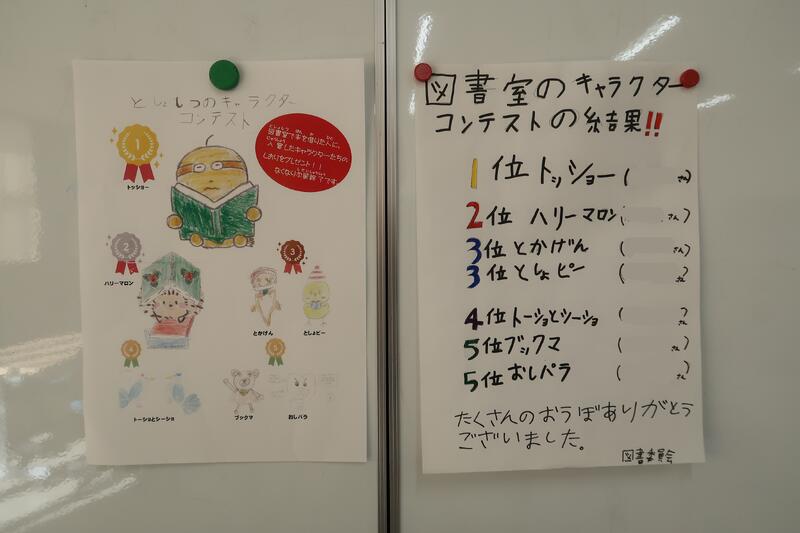 としょしつのキャラクター
コンテスト
図書室で本を借りた人に、
入賞したキャラクターたちの
しおりをプレゼント！！
なくなり次第終了です
1
トッショー
2
ハリーマロン
3
とかげん
としょピー
4
トーショとシーショ
5
ブックマ
おしパラ
図書室のキャラクター
コンテストの結果!!
1位 トッショー( さん)
2位 ハリーマロン( さん)
3位 とかげん ( さん)
3位 としょピー ( さん)
4位 トーショとシーショ ( さん)
5位 ブックマ ( さん)
5位 おしパラ ( さん)
たくさんのおうぼありがとう
ございました。
図書委員会